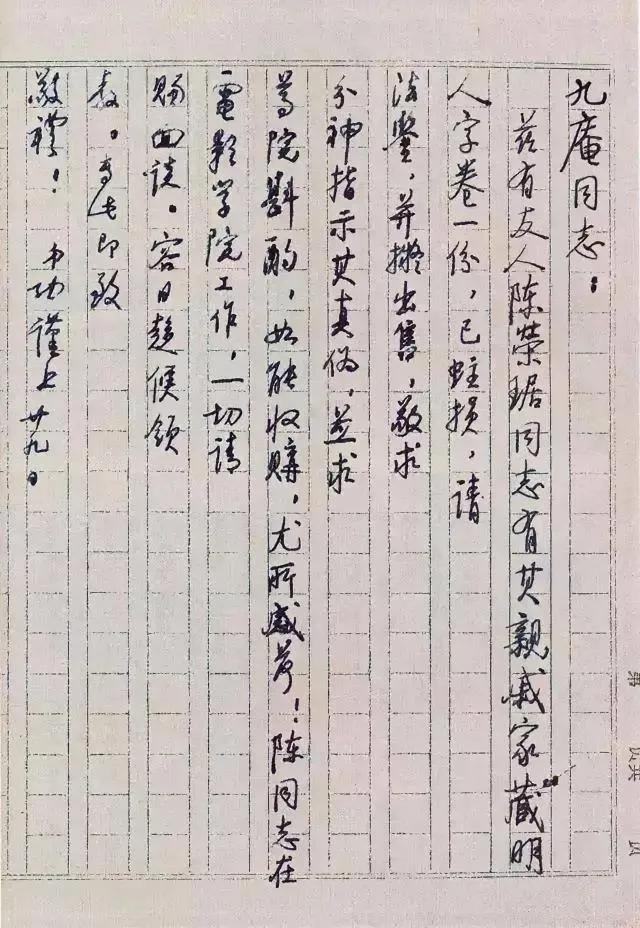 九庵同志：
兹有友人陈荣琚同志有其親戚家藏明
人字卷一份，已蛀损，请
法鉴，并擬出售，敬求
分神指示其真伪，并求
尊院斟酌，如能收購，尤所感荷！陈同志在
電影学院工作，一切请
赐面谈。容日趋候领
教。专此即致
敬礼！ 功謹上 廿九日